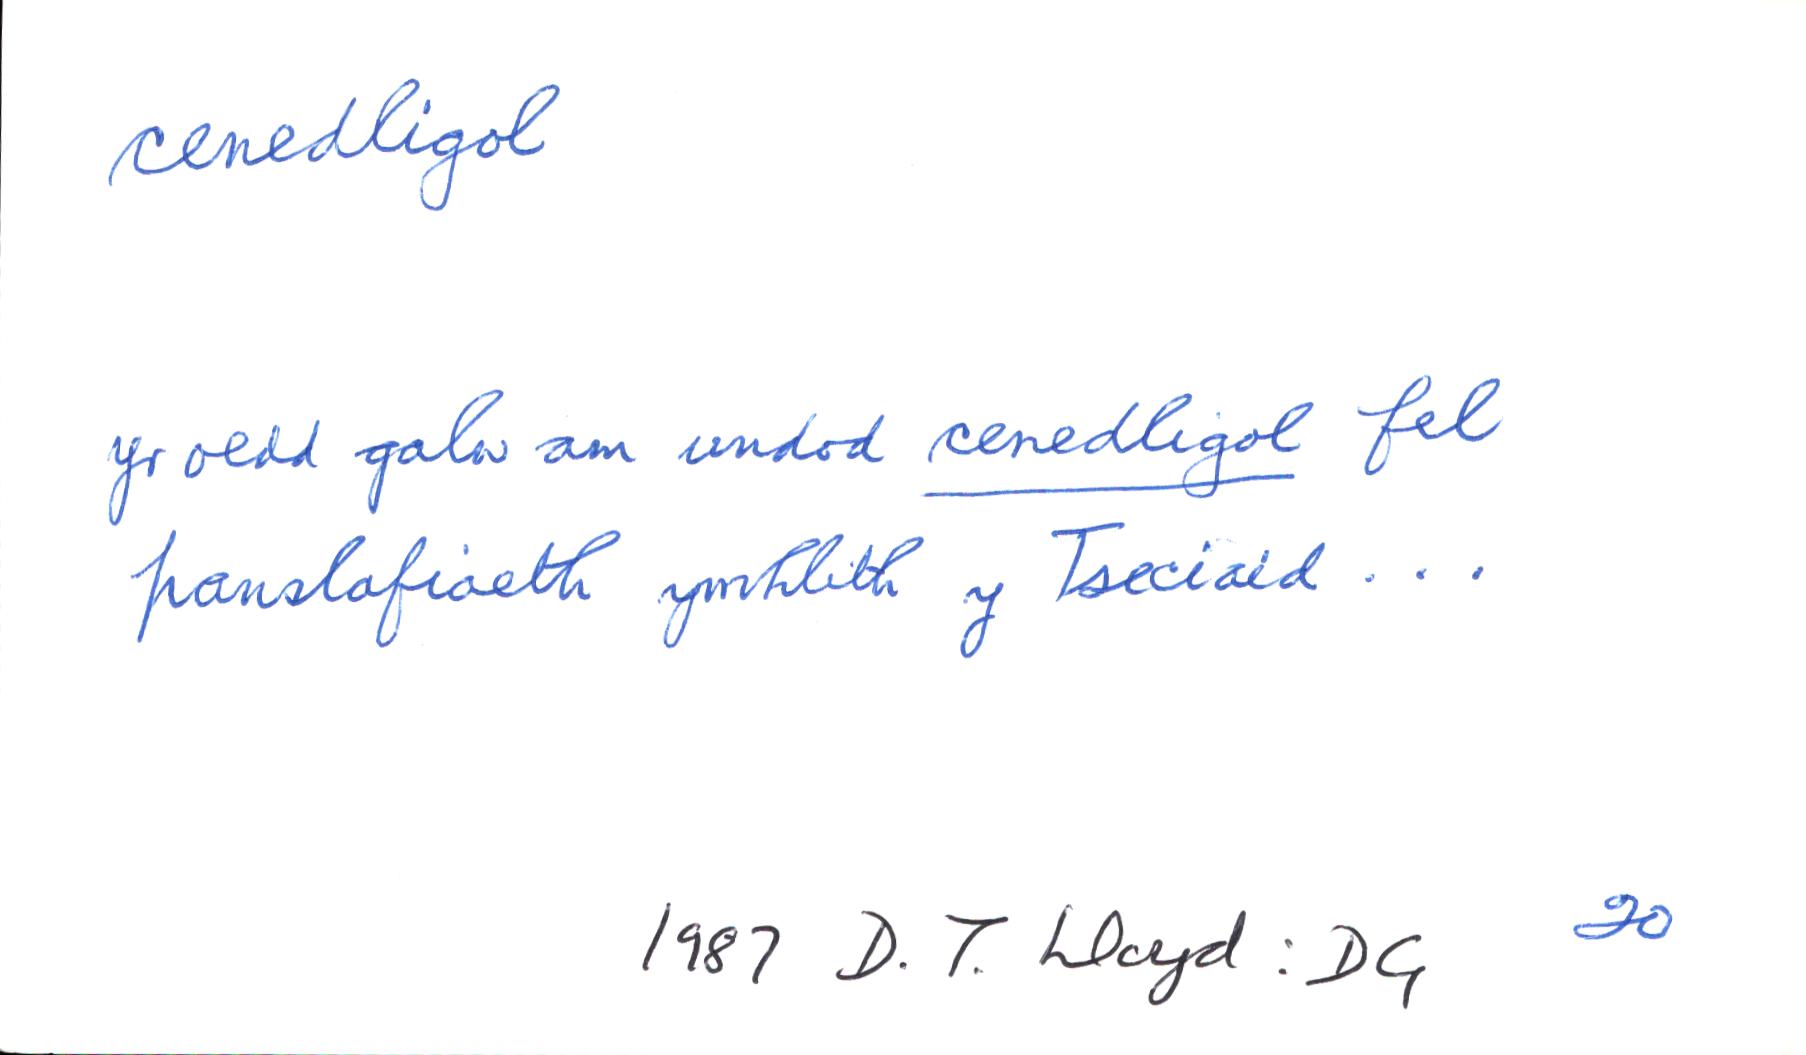 cenedligol
yr oedd galw am undod cenedligol fel
panslafiaeth ymhlith y Tseciaid ...
1987 D. T. Lloyd : DG 20